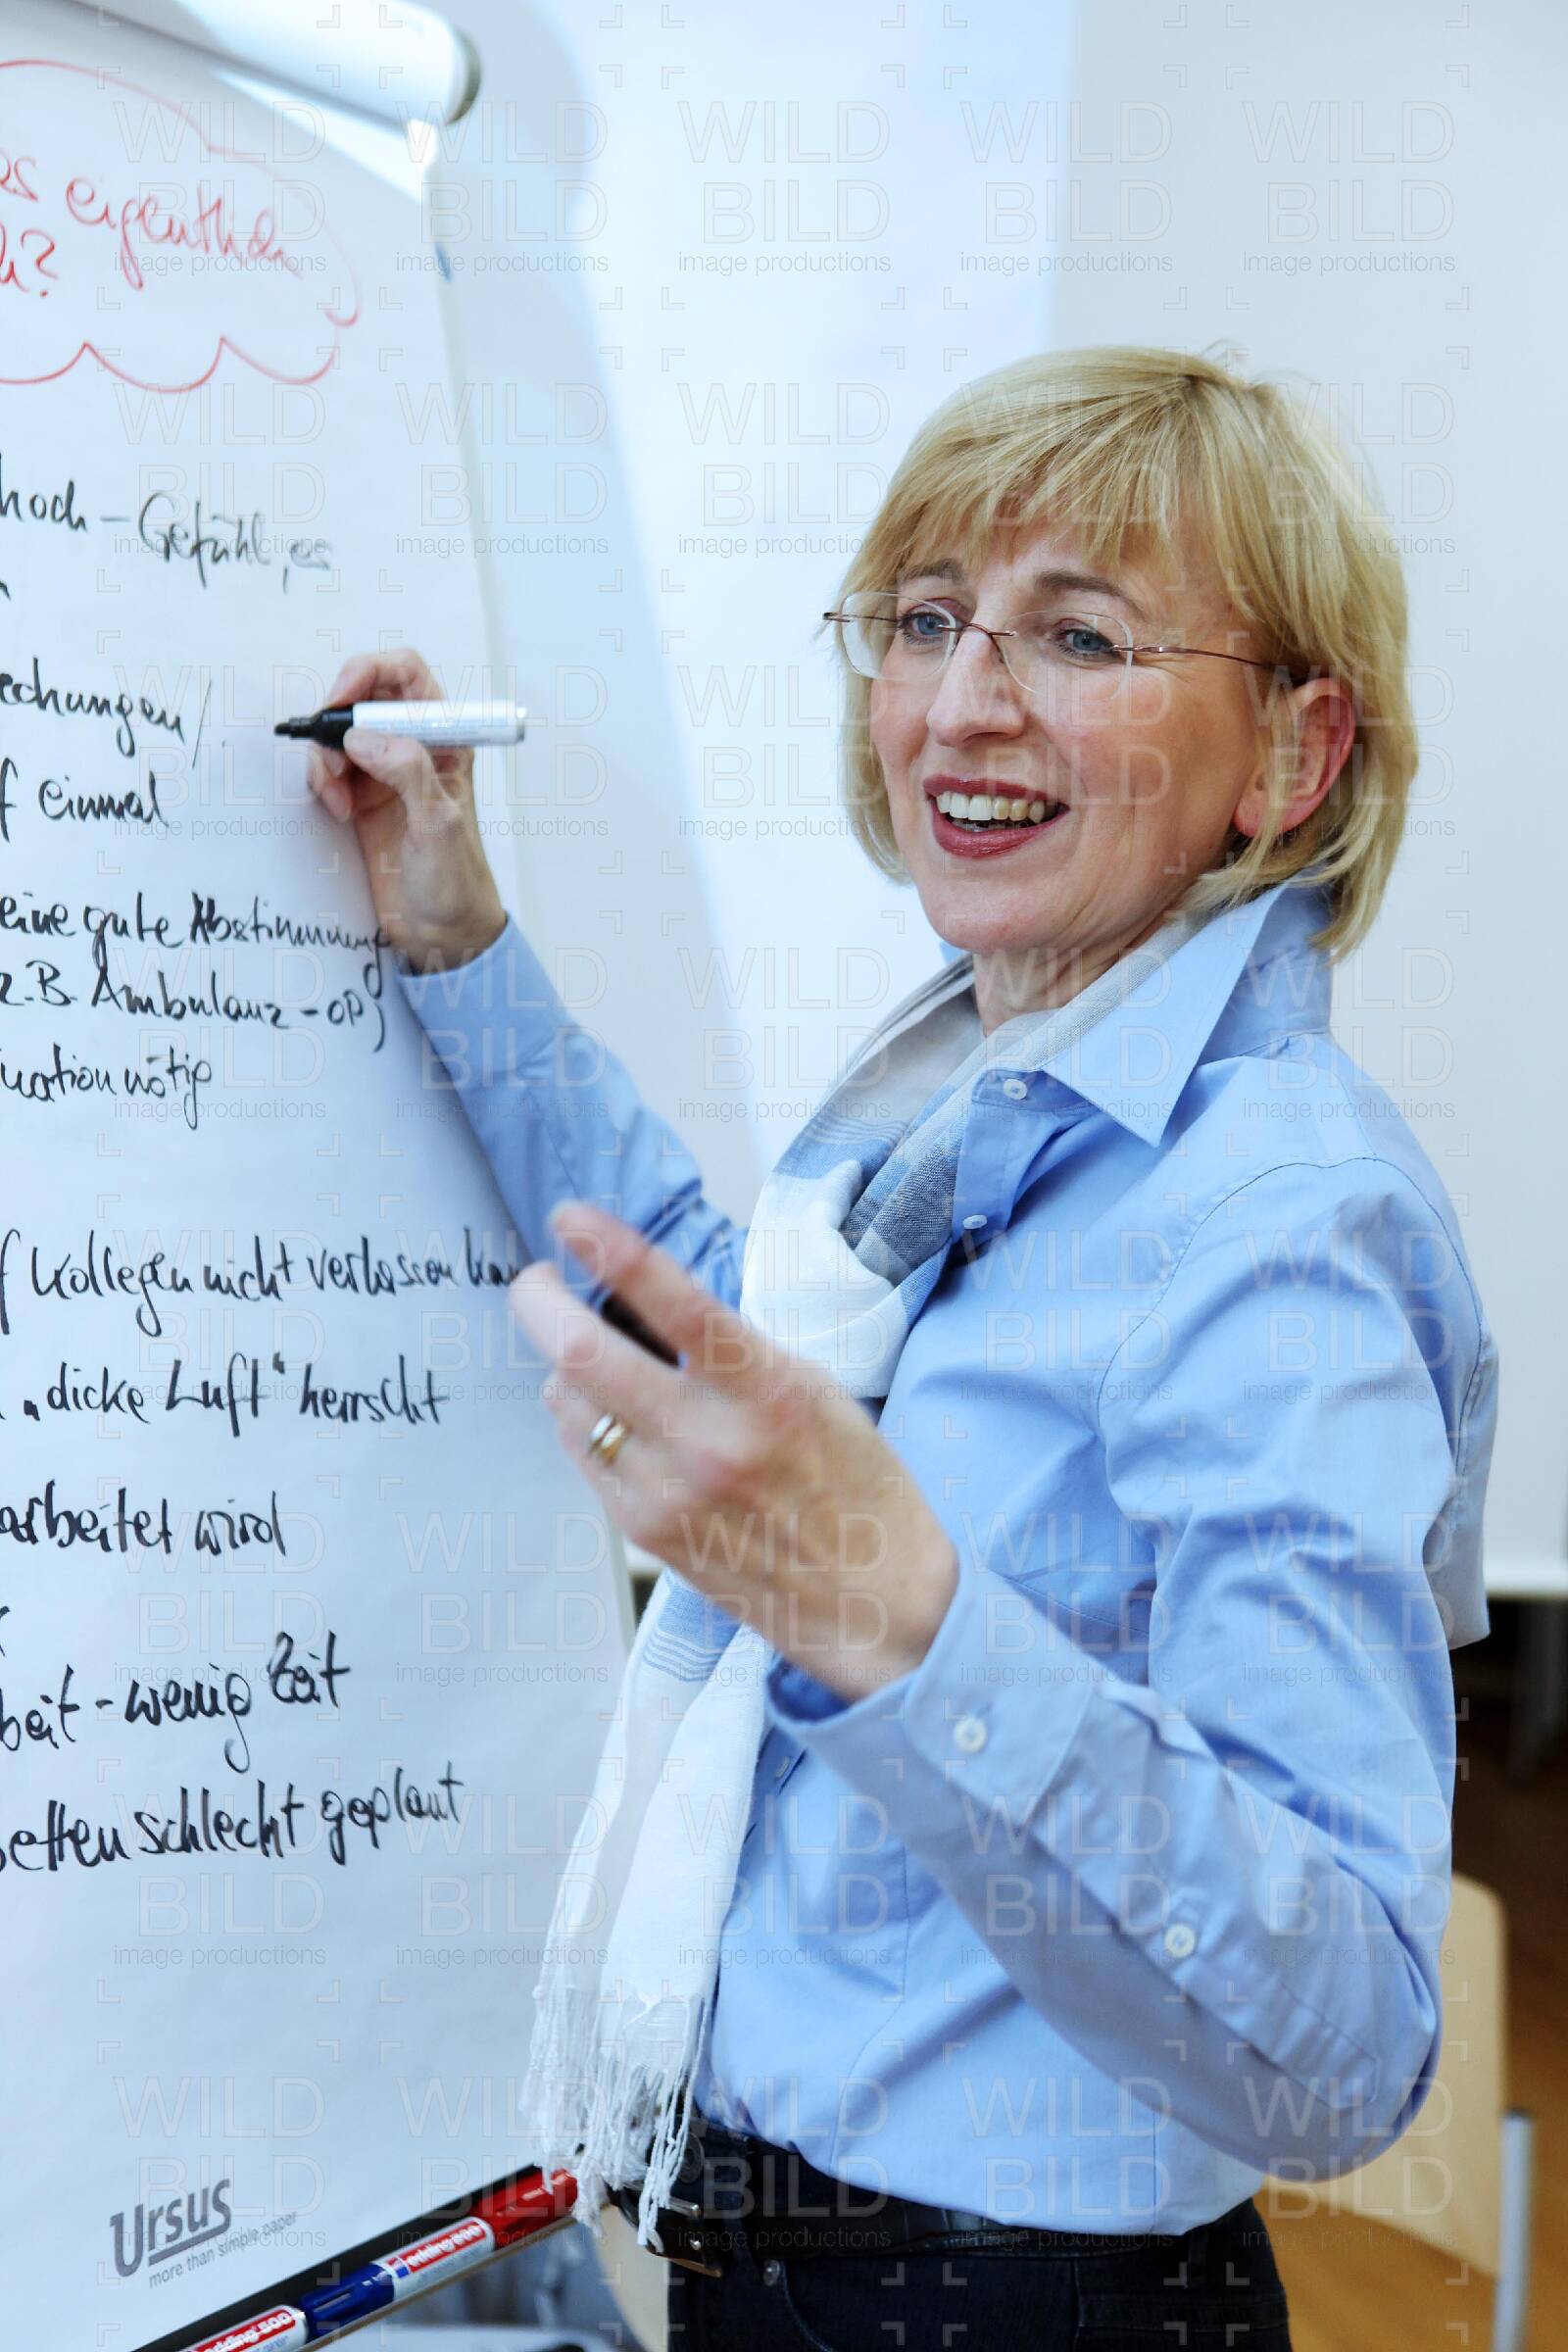 es eigentlich
h?
noch - Gefühl, es
echungen /
f einmal
eine gute Abstimmung
z.B. Ambulanz - OP)
ination nötig
f Kollegen nicht verlassen kan
"dicke Luft" herrscht
arbeitet wird
beit - wenig Zeit
betten schlecht geplant
Ursus
more than simple paper
edding 500
edding 500
WILD
BILD
image productions